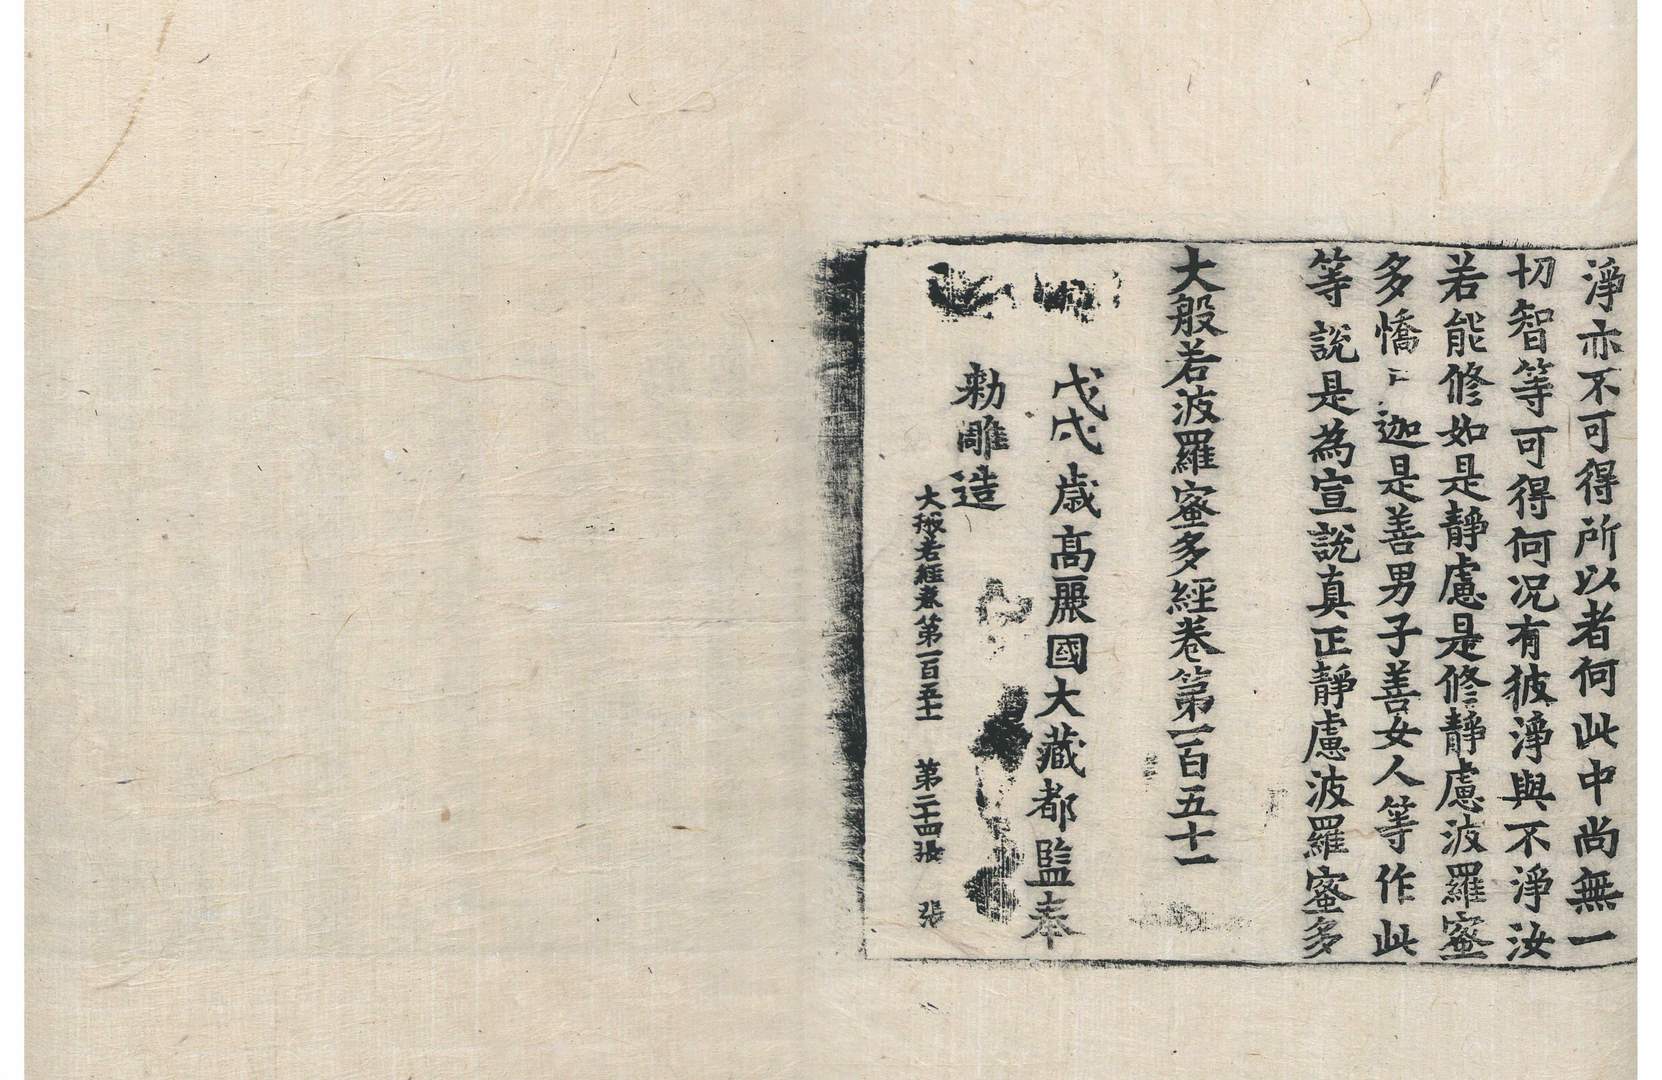 淨亦不可得所以者何此中尚無一
切智等可得何況有彼淨與不淨汝
若能修如是靜慮是修靜慮波羅蜜
多憍 迦是善男子善女人等作此
等說是為宣說真正靜慮波羅蜜多
大般若波羅蜜多經卷第一百五十一
戊戌歲高麗國大藏都監奉
勑雕造
大般若經卷第一百五十一 第二十四張 張